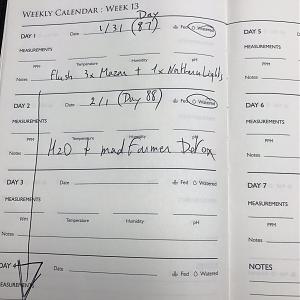 WEEKLY CALENDAR : WEEK 13
DAY 1 Date 1/31 (Day 87) Fed Watered
MEASUREMENTS
PPM Temperature Humidity pH
Notes Flush 3x Mazar + 1x Northern Lights
DAY 2 Date 2/1 (Day 88) Fed Watered
MEASUREMENTS
PPM Temperature Humidity pH
Notes H2O + mad Farmer Detox
DAY 3 Date Fed Watered
MEASUREMENTS
PPM Temperature Humidity pH
Notes
DAY 4 Date Fed Watered
MEASUREMENTS
PPM Temperature Humidity pH
DAY 5
MEASUREMENTS
PPM
Notes
DAY 6
MEASUREMENTS
PPM
Notes
DAY 7
MEASUREMENTS
PPM
Notes
NOTES